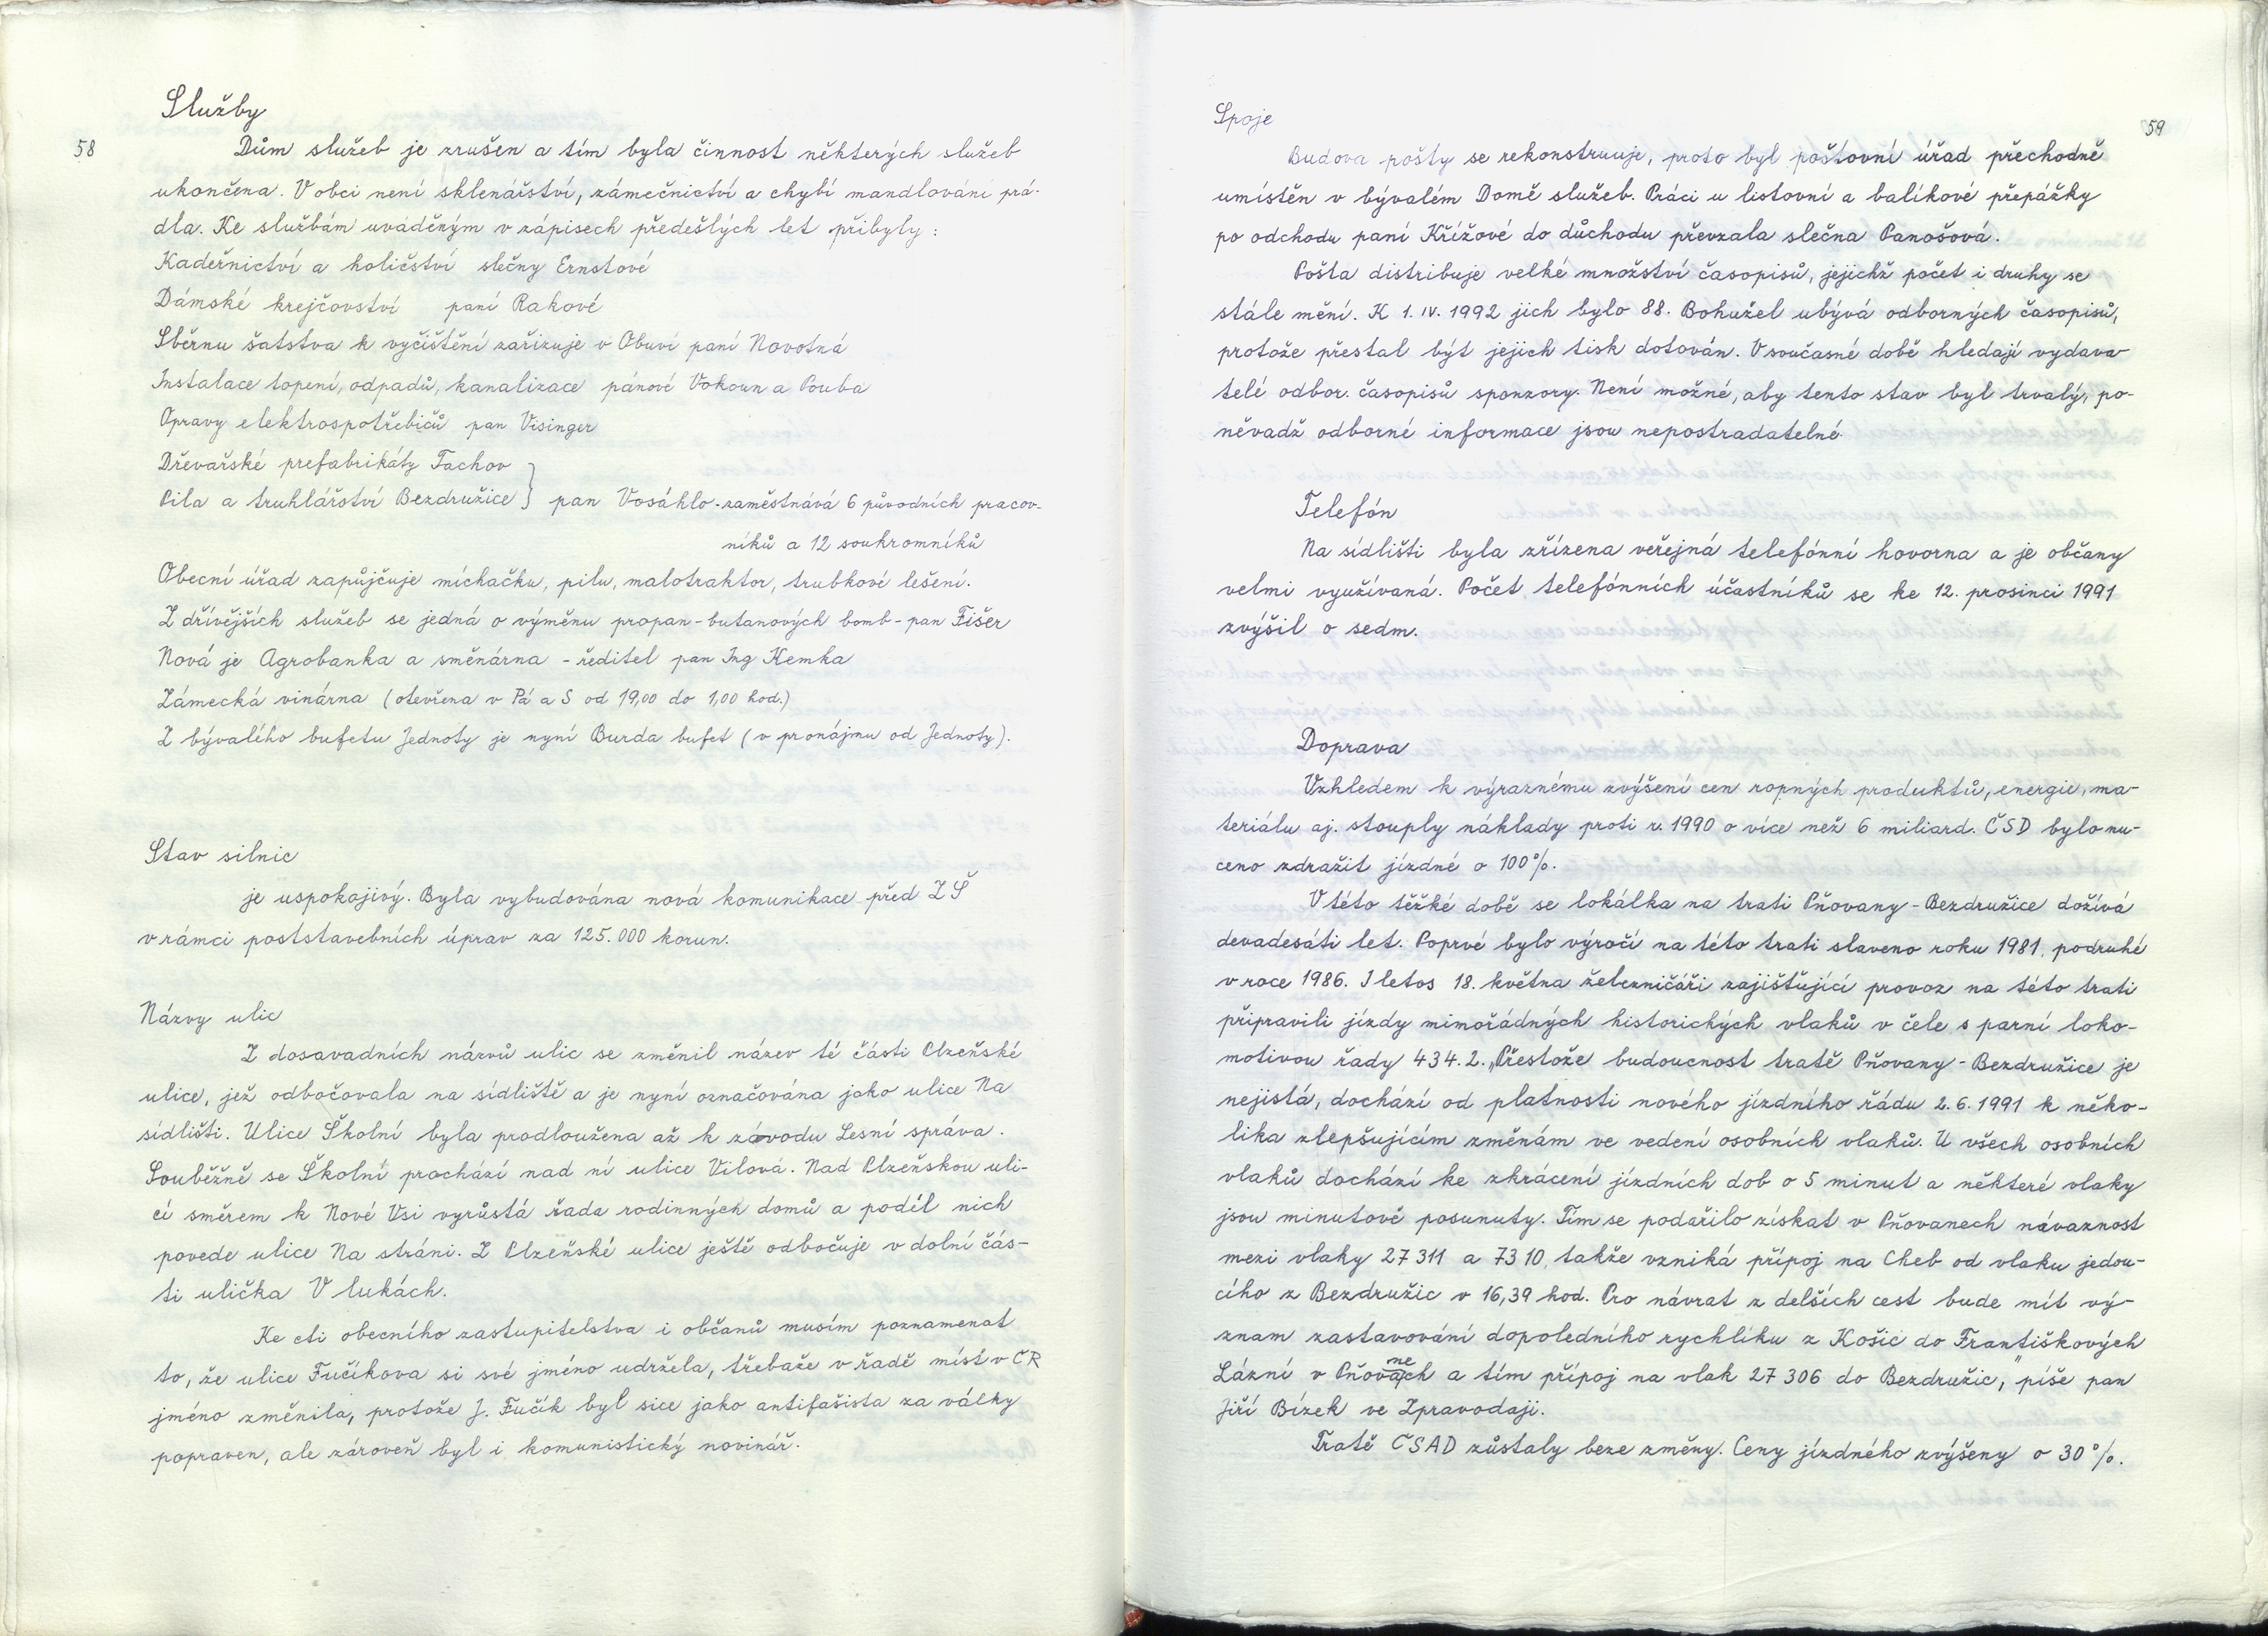 58
Služby
Dům služeb je zrušen a tím byla činnost některých služeb
ukončena. V obci není sklenářství, zámečnictví a chybí mandlování prá-
dla. Ke službám uváděným v zápisech předešlých let přibyly:
Kadeřnictví a holičství slečny Ernstové
Dámské krejčovství paní Rakové
Sběrnu šatstva k vyčištění zařizuje v Obuvi paní Novotná
Instalace topení, odpadů, kanalizace pánové Vokoun a Pouba
Opravy elektrospotřebičů pan Visinger
Dřevařské prefabrikáty Tachov
Pila a truhlářství Bezdružice } pan Vosáhlo - zaměstnává 6 původních pracov-
níků a 12 soukromníků
Obecní úřad zapůjčuje míchačku, pilu, malotraktor, trubkové lešení.
Z dřívějších služeb se jedná o výměnu propan-butanových bomb - pan Fišer
Nová je Agrobanka a směnárna - ředitel pan Ing Kemka
Zámecká vinárna (otevřena v Pá a S od 19,00 do 1,00 hod.)
Z bývalého bufetu Jednoty je nyní Burda bufet (v pronájmu od Jednoty).
Stav silnic
je uspokojivý. Byla vybudována nová komunikace před ZŠ
v rámci poststavebních úprav za 125.000 korun.
Názvy ulic
Z dosavadních názvů ulic se změnil název té části Plzeňské
ulice, jež odbočovala na sídliště a je nyní označována jako ulice Na
sídlišti. Ulice Školní byla prodloužena až k závodu Lesní správa.
Souběžně se Školní prochází nad ní ulice Vilová. Nad Plzeňskou uli-
cí směrem k Nové Vsi vyrůstá řada rodinných domů a podél nich
povede ulice Na stráni. Z Plzeňské ulice ještě odbočuje v dolní čás-
ti ulička V lukách.
Ke cti obecního zastupitelstva i občanů musím poznamenat
to, že ulice Fučíkova si své jméno udržela, třebaže v řadě míst v ČR
jméno změnila, protože J. Fučík byl sice jako antifašista za války
popraven, ale zároveň byl i komunistický novinář.
59
Spoje
Budova pošty se rekonstruuje, proto byl poštovní úřad přechodně
umístěn v bývalém Domě služeb. Práci u listovní a balíkové přepážky
po odchodu paní Křížové do důchodu převzala slečna Panošová.
Pošta distribuje velké množství časopisů, jejichž počet i druhy se
stále mění. K 1. IV. 1992 jich bylo 88. Bohužel ubývá odborných časopisů,
protože přestal být jejich tisk dotován. V současné době hledají vydava-
telé odbor. časopisů sponzory. Není možné, aby tento stav byl trvalý, po-
něvadž odborné informace jsou nepostradatelné.
Telefón
Na sídlišti byla zřízena veřejná telefónní hovorna a je občany
velmi využívaná. Počet telefónních účastníků se ke 12. prosinci 1991
zvýšil o sedm.
Doprava
Vzhledem k výraznému zvýšení cen ropných produktů, energie, ma-
teriálu aj. stouply náklady proti r. 1990 o více než 6 miliard. ČSD bylo nu-
ceno zdražit jízdné o 100%.
V této těžké době se lokálka na trati Pňovany - Bezdružice dožívá
devadesáti let. Poprvé bylo výročí na této trati slaveno roku 1981, podruhé
v roce 1986. I letos 18. května železničáři zajišťující provoz na této trati
připravili jízdy mimořádných historických vlaků v čele s parní loko-
motivou řady 434.2. „Přestože budoucnost tratě Pňovany - Bezdružice je
nejistá, dochází od platnosti nového jízdního řádu 2.6.1991 k něko-
lika zlepšujícím změnám ve vedení osobních vlaků. U všech osobních
vlaků dochází ke zkrácení jízdních dob o 5 minut a některé vlaky
jsou minutově posunuty. Tím se podařilo získat v Pňovanech návaznost
mezi vlaky 27 311 a 7310, takže vzniká přípoj na Cheb od vlaku jedou-
cího z Bezdružic v 16,39 hod. Pro návrat z delších cest bude mít vý-
znam zastavování dopoledního rychlíku z Košic do Františkových
Lázní v Pňovanech a tím přípoj na vlak 27 306 do Bezdružic," píše pan
Jiří Bízek ve Zpravodaji.
Tratě ČSAD zůstaly beze změny. Ceny jízdného zvýšeny o 30%.